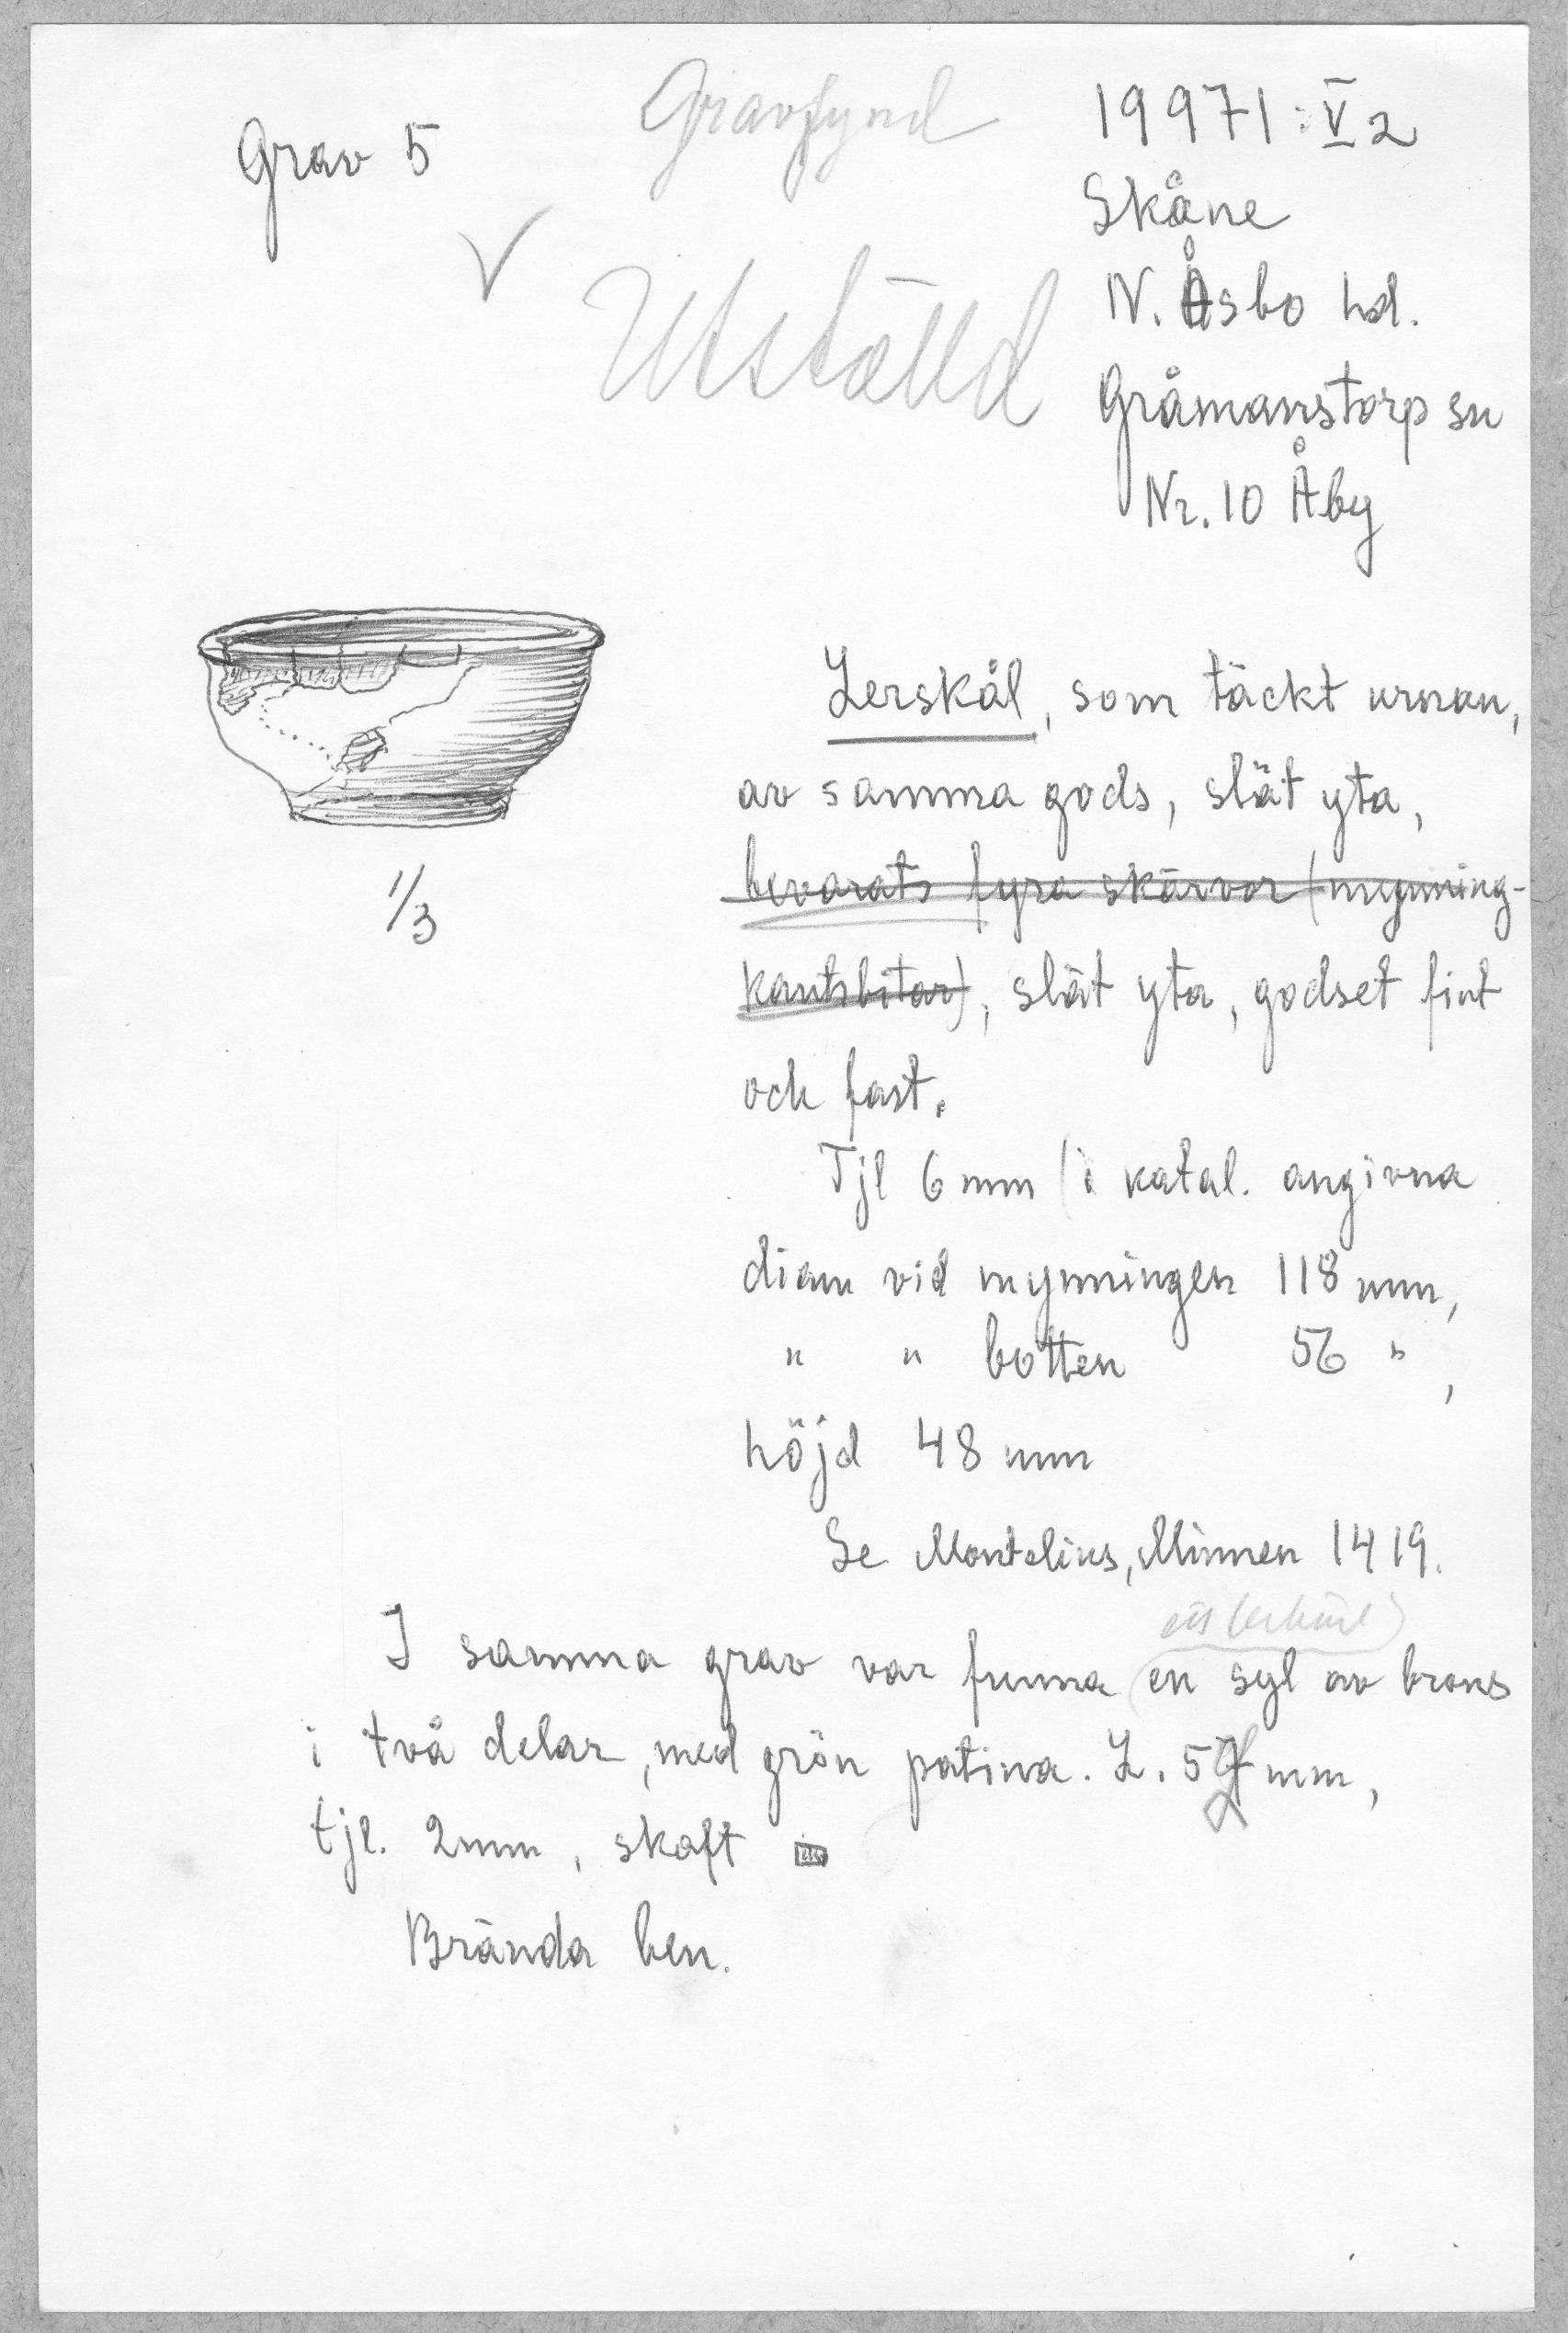 Grav 5
Gravfynd
19971:V2
Skåne
N. Åsbo hd.
Gråmanstorp sn
Nr. 10 Åby
Utställd
1/3
Lerskål, som täckt urnan,
av samma gods, slät yta,
bevarats fyra skärvor (mynning-
kantsbitar), slät yta, godset fint
och fast.
Tjl 6 mm (i katal. angivna
diam vid mynningen 118 mm,
" " botten 56 ",
höjd 48 mm
Se Montelius, Minnen 1419.
I samma grav var funna (en syl av brons
i två delar, med grön patina. L. mm,
tjl. 2mm, skaft
Brända ben.